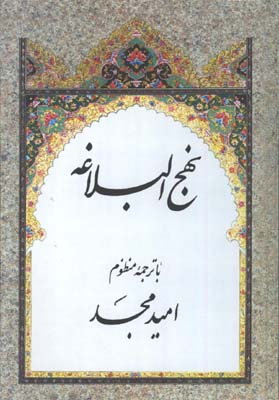 نهج البلاغه
با ترجمهٔ منظوم
امید مجد